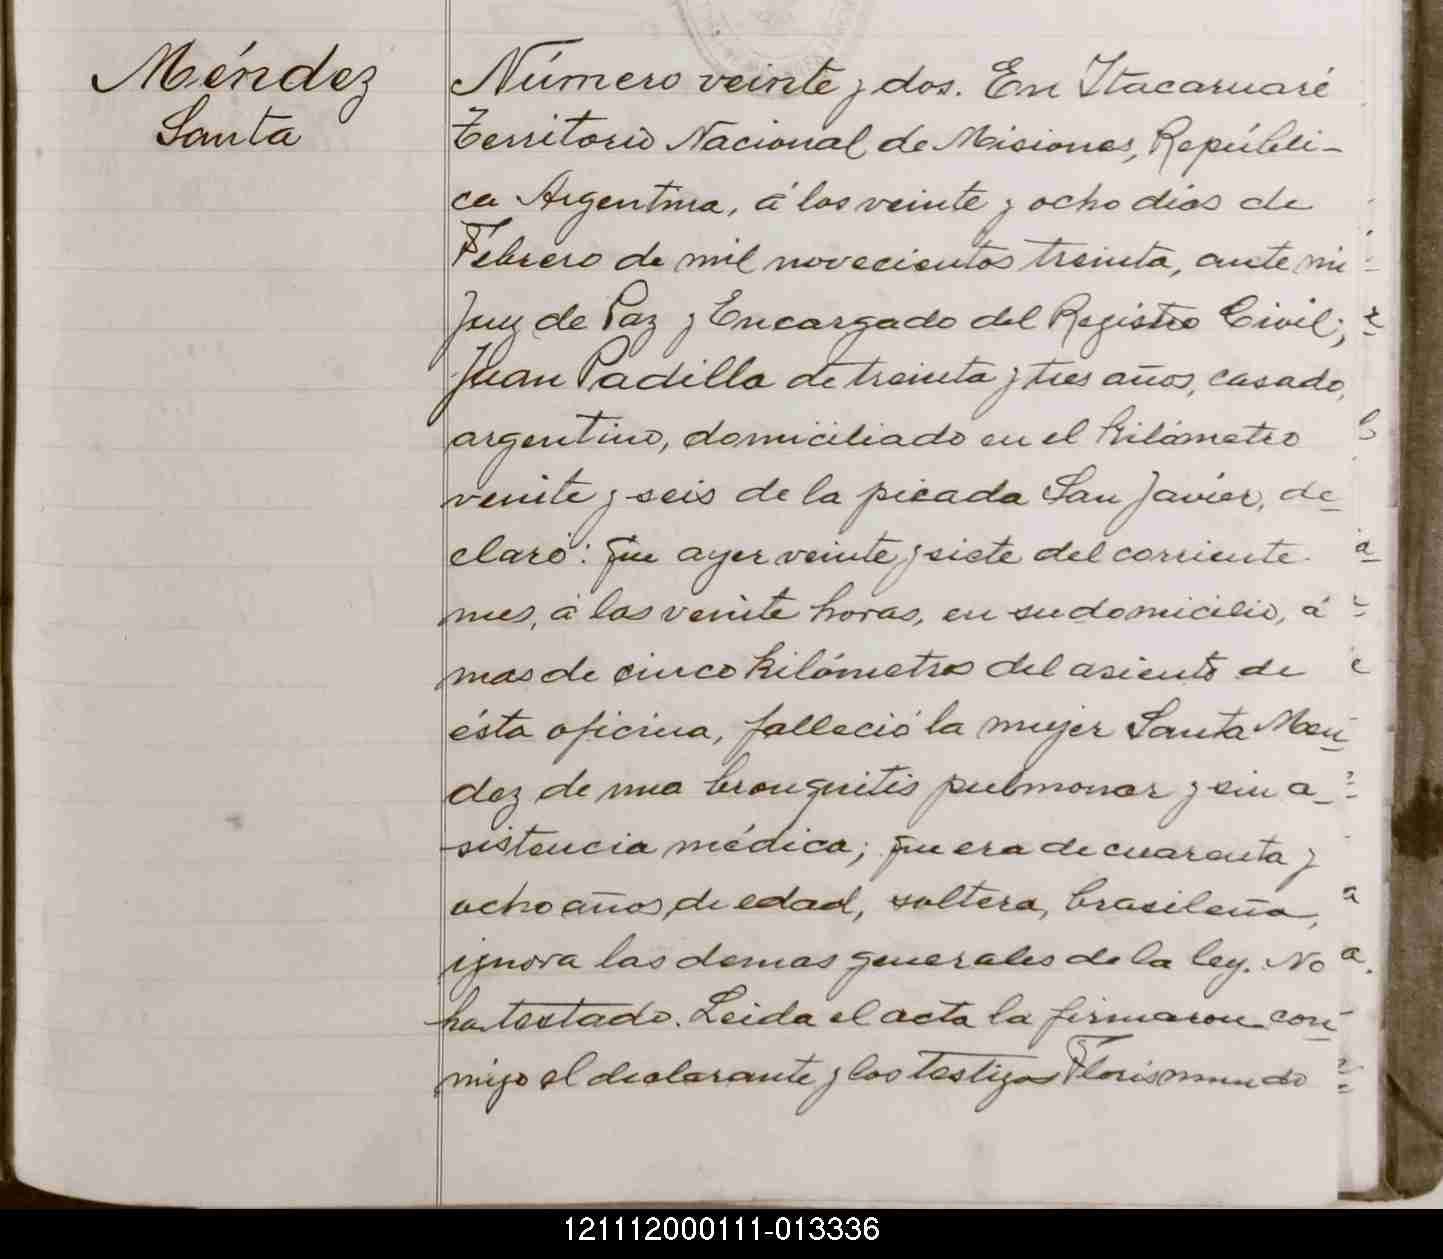 Méndez
Santa
Número veinte y dos. En Itacaruaré
Territorio Nacional de Misiones, Repúbli-
ca Argentina, á los veinte y ocho dias de
Febrero de mil novecientos treinta, ante mi
Juez de Paz y Encargado del Registro Civil;
Juan Padilla de treinta y tres años, casado,
argentino, domiciliado en el kilómetro
veinte y seis de la picada San Javier, de-
claró: que ayer veinte y siete del corriente
mes, á las veinte horas, en su domicilio, á
mas de cinco kilómetros del asiento de
ésta oficina, falleció la mujer Santa Men-
dez de una bronquitis pulmonar y sin a-
sistencia médica; que era de cuarenta y
ocho años de edad, soltera, brasileña,
ignora las demas generales de la ley. No
ha testado. Leida el acta la firmaron con-
migo el declarante y los testigos Florismundo
121112000111-013336